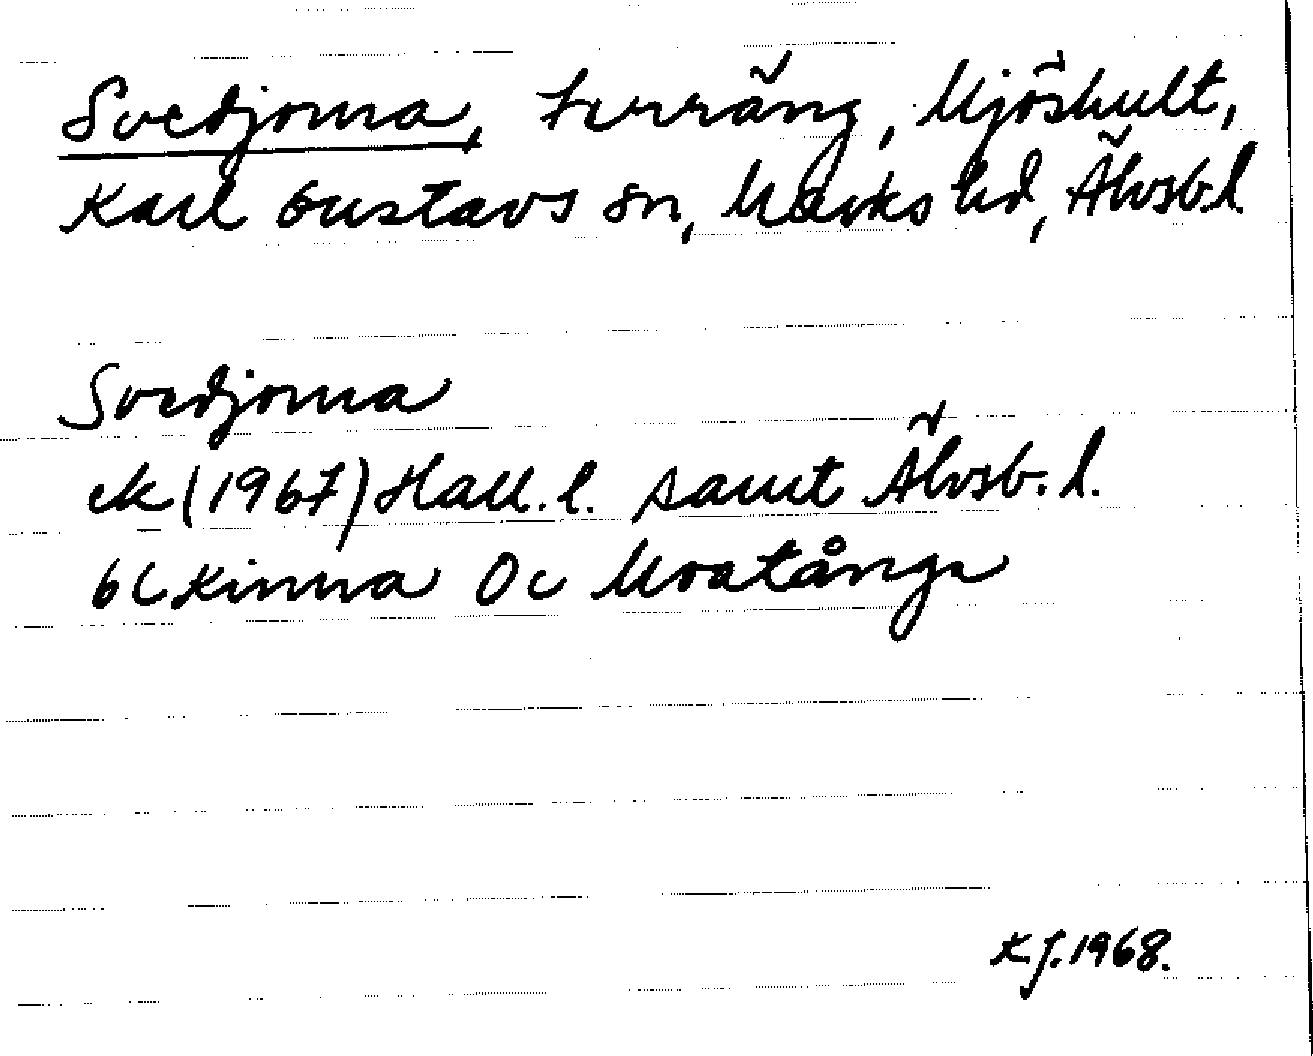 Svedjorna, terräng, Mjöshult,
Karl Gustavs sn, Marks hd, Älvsb.l.
Svedjorna
ek (1967) Hall.l. samt Älvsb.l.
6C Kinna 0c Moatånga
KJ. 1968.